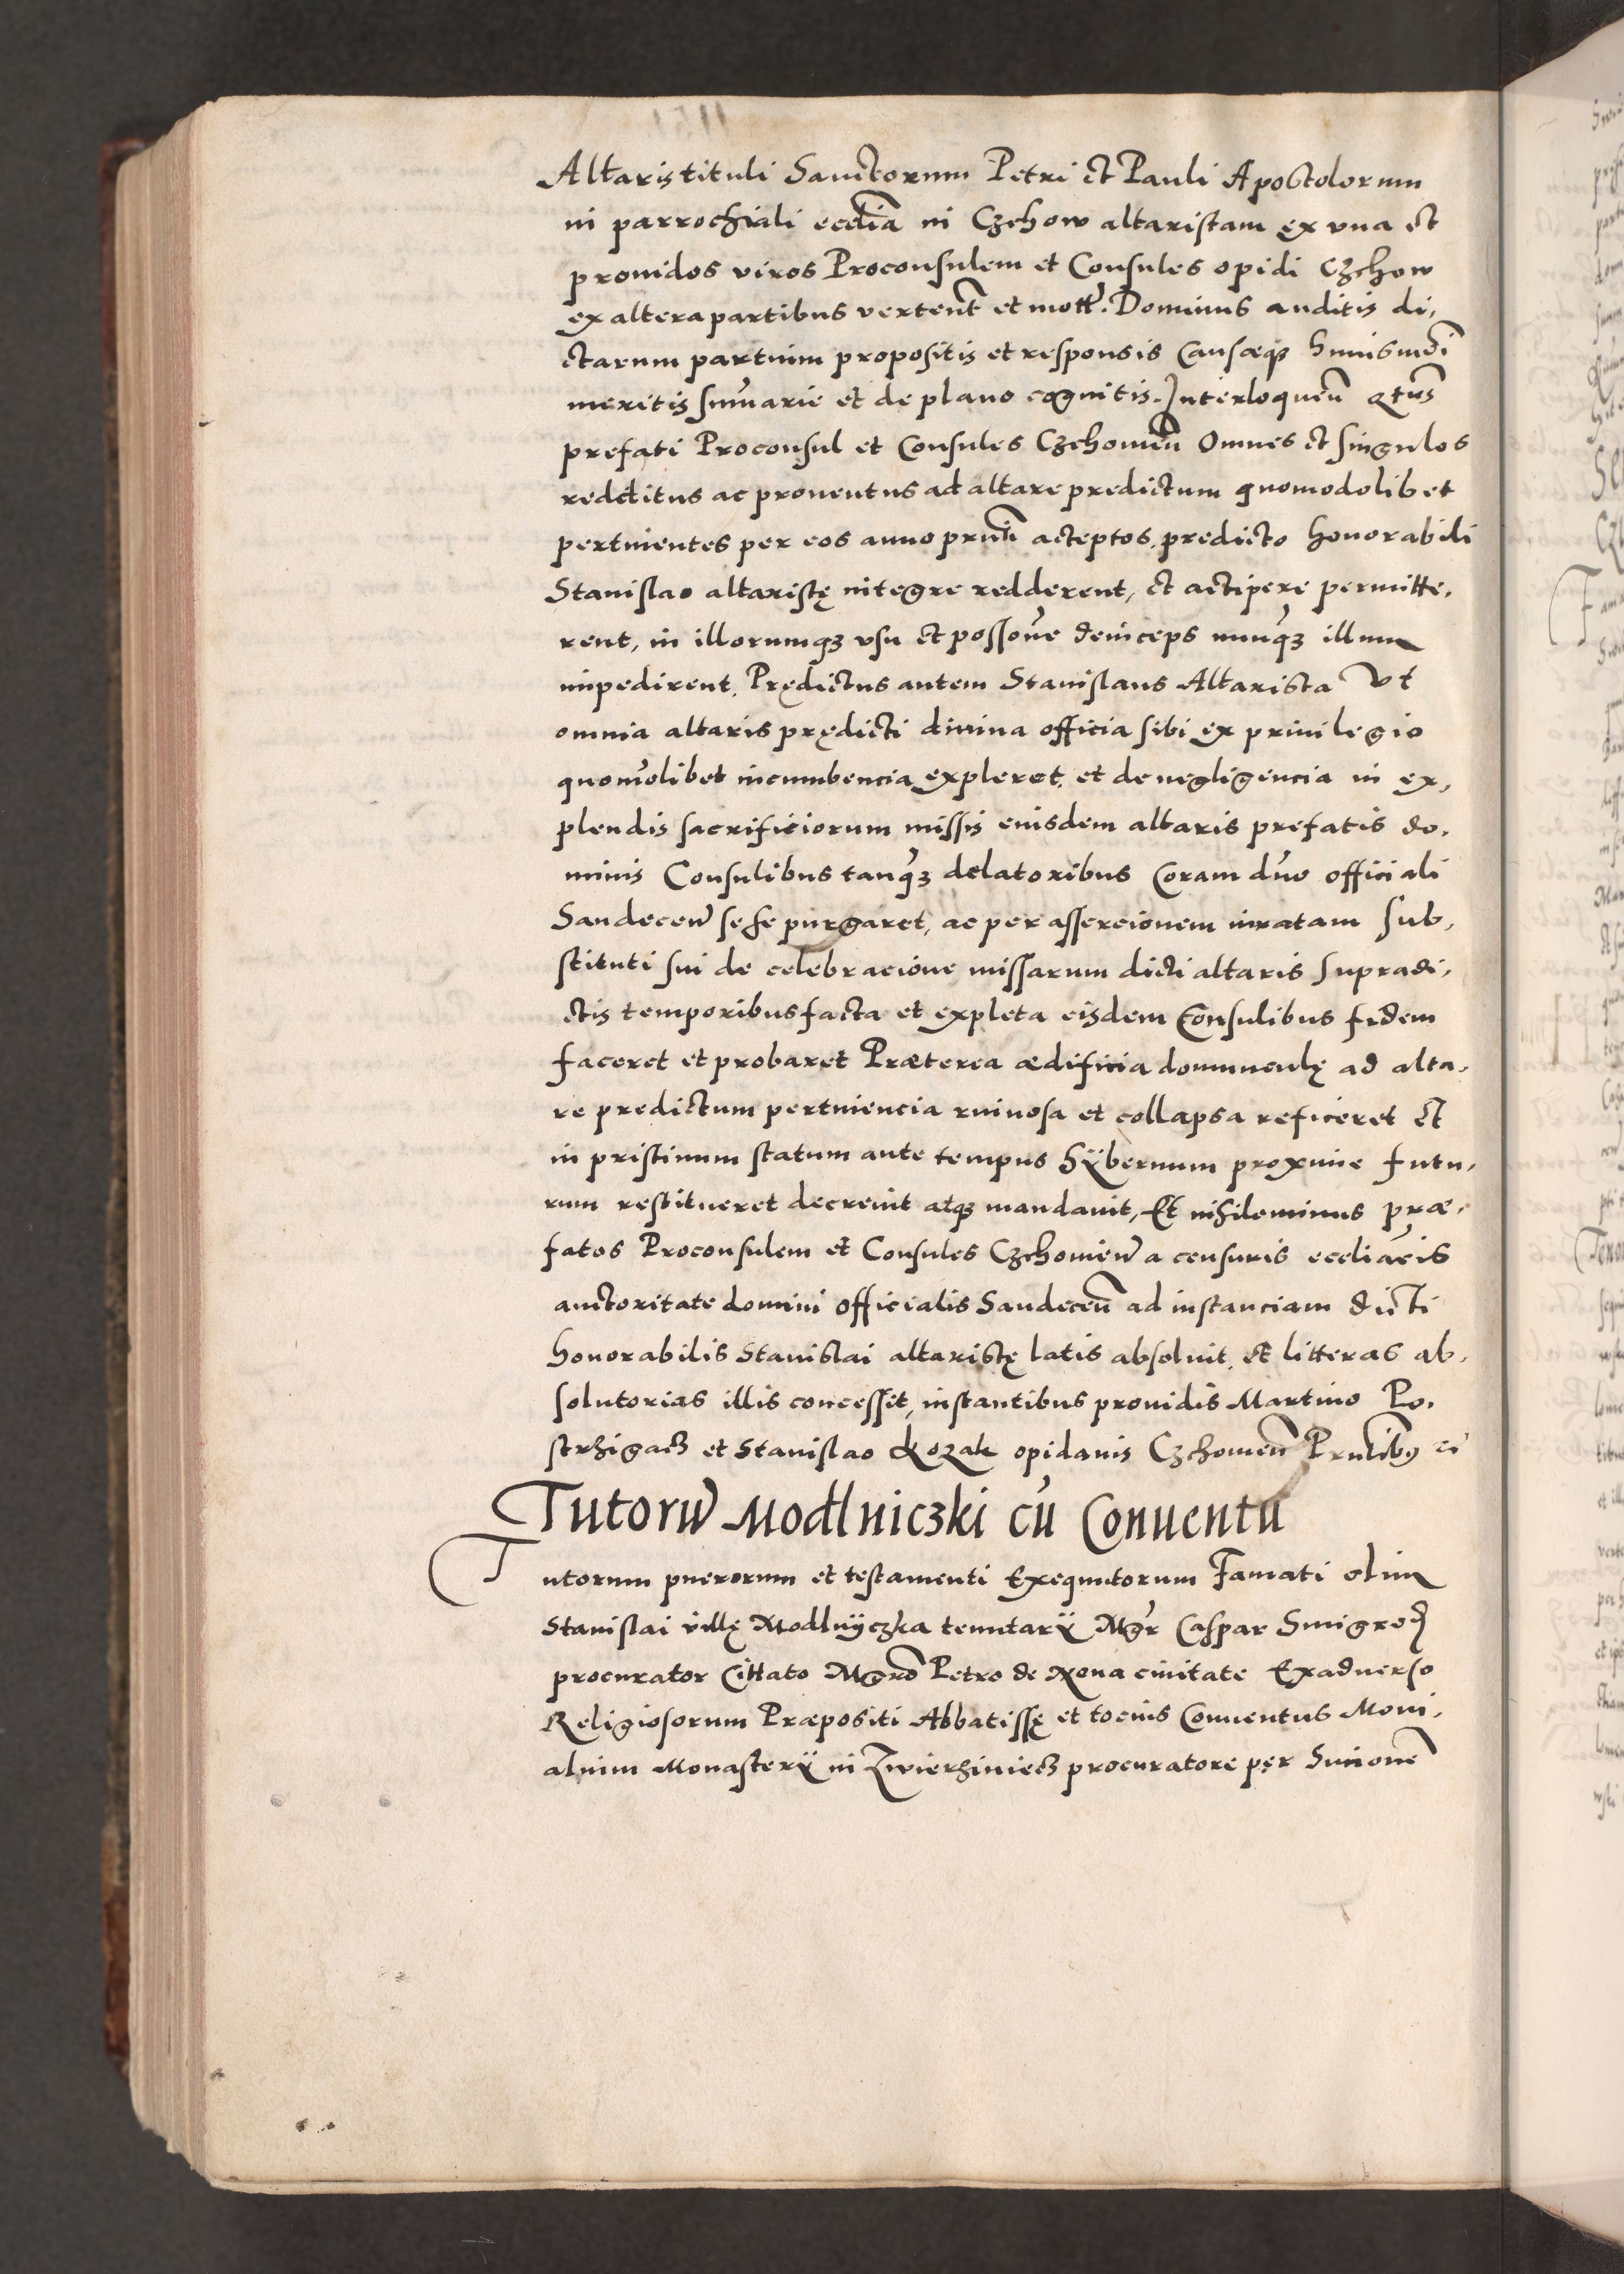 Altaris tituli Sanctorum Petri et Pauli Apostolorum
in parrochiali ecclia in Czchow altaristam ex vna et
prouidos viros Proconsulem et Consules opidi Czchow
ex altera partibus vertent et mott. Dominus auditis di,
ctarum partium propositis et responsis Causæq huiusmdi
meritis sumarie et de plano cognitis. Interloquen qtus
prefati Proconsul et Consules Czchouien Omnes et singulos
redditus ac prouentus ad altare predictum quomodolibet
pertinentes per eos anno prnti acceptos, predicto honorabili
Stanislao altaristę integre redderent, et accipere permitte,
rent, in illorumq vsu et possone deinceps nunq illum
impedirent. Prędictus autem Stanislaus Altarista vt
omnia altaris prędicti diuina officia sibi ex priuilegio
quomolibet incumbencia expleret, et de negligencia in ex,
plendis sacrificiorum missis eiusdem altaris prefatis do,
minis Consulibus tanq delatoribus Coram dno officiali
Sandecen sese purgaret, ac per assercionem iuratam sub,
stituti sui de celebracione missarum dicti altaris supradi,
ctis temporibus facta et expleta eisdem Consulibus fidem
faceret et probaret Præterea ædificia domunculę ad alta,
re predictum pertinencia ruinosa et collapsa reficeret et
in pristinum statum ante tempus hÿbernum proxime futu,
rum restitueret decreuit atq mandauit, Et nihilominus præ,
fatos Proconsulem et Consules Czchouien a censuris eccliacis
auctoritate domini officialis Sandecen ad instanciam dicti
honorabilis Stanislai altaristę latis absoluit, et litteras ab,
solutorias illis concessit, instantibus prouidis Martino Po,
strzigacz et Stanislao Kozak opidanis Czchouien Prntibq
Tutoru Modlniczki cu Conuentu
Tutorum puerorum et testamenti Exequutorum Famati olim
Stanislai villę Modlnÿczka tenutarÿ Mgr Caspar Smigrod
procurator Cittato Mgro Petro de Noua ciuitate Exaduerso
Religiosorum Præpositi Abbatissę et tocius Conuentus Moni,
alium Monasterÿ in Zwierziniecz procuratore per